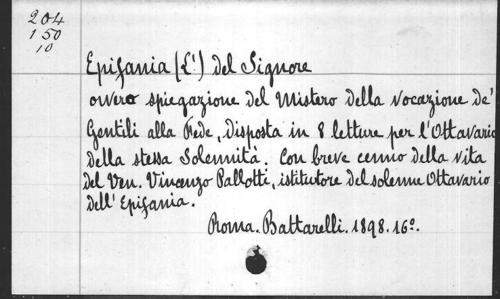 204
150
10
Epifania (L') del Signore
ovvero spiegazione del Mistero della vocazione de'
Gentili alla Fede, disposta in 8 letture per l'Ottavario
della stessa Solennità. Con breve cenno della vita
del Ven. Vincenzo Pallotti, istitutore del solenne Ottavario
dell'Epifania.
Roma. Battarelli. 1898. 16º.